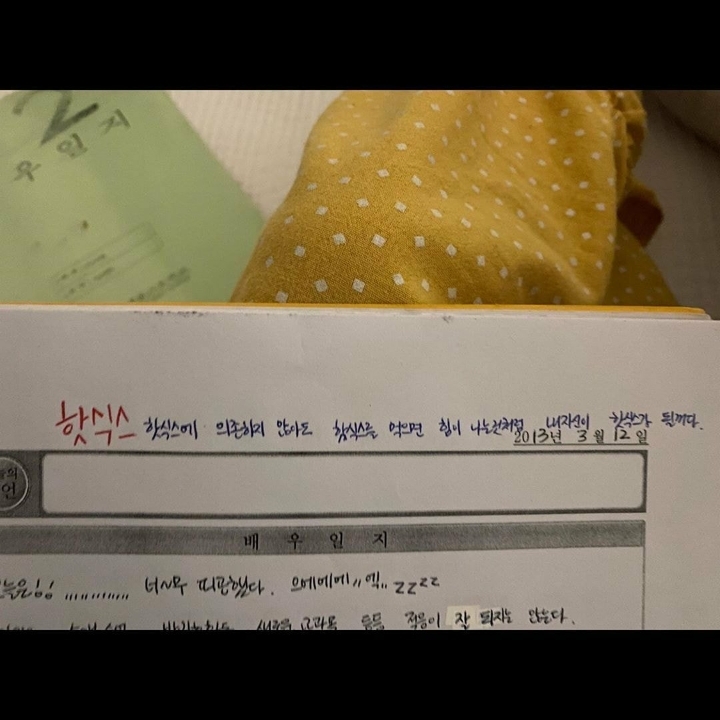 2
우 일 지
핫식스 핫식스에 의존하지 않아도 핫식스를 먹으면 힘이 나는것처럼 내자신이 핫식스가 될꺼다.
2013년 3월 12일
의
언
배 우 일 지
너~무 피곤했다. 으에에에,, 엑.. zzzz
새로운 교과목 등등 적응이 잘 되지는 않는다.